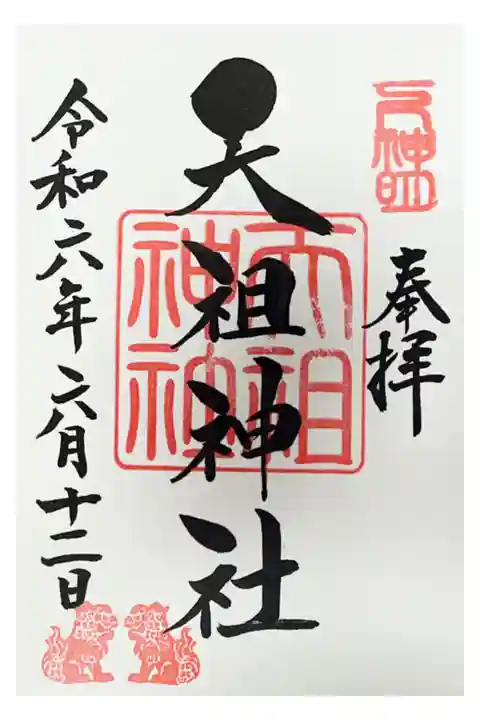 元神明
奉拝
天祖神社
天祖神社
令和六年六月十二日